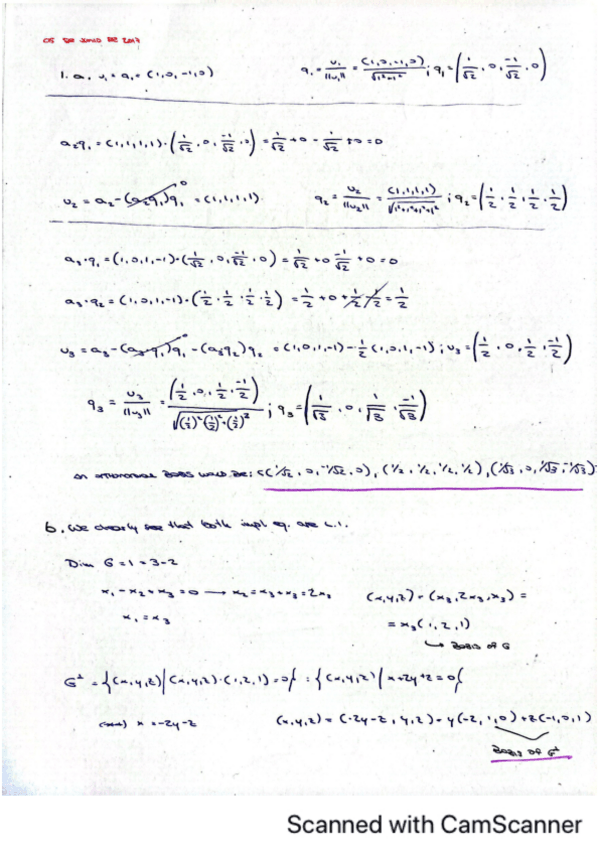 05 DE JUNIO DE 2017
1. a. v₁ = a₁ = (1,0,-1,0) q₁ = v₁/||v₁|| = (1,0,-1,0)/√(1²+1²) ; q₁ = (1/√2, 0, -1/√2, 0)
a₂q₁ = (1,1,1,1)·(1/√2, 0, -1/√2, 0) = 1/√2 + 0 - 1/√2 + 0 = 0
v₂ = a₂ - (a₂q₁)q₁ 0 = (1,1,1,1) q₂ = v₂/||v₂|| = (1,1,1,1)/√(1²+1²+1²+1²) ; q₂ = (1/2, 1/2, 1/2, 1/2)
a₃·q₁ = (1,0,1,-1)·(1/√2, 0, -1/√2, 0) = 1/√2 + 0 -1/√2 + 0 = 0
a₃·q₂ = (1,0,1,-1)·(1/2, 1/2, 1/2, 1/2) = 1/2 + 0 + 1/2 - 1/2 = 1/2
v₃ = a₃ - (a₃q₁)q₁ 0 - (a₃q₂)q₂ = (1,0,1,-1) - 1/2 (1,0,1,-1) ; v₃ = (1/2, 0, 1/2, -1/2)
q₃ = v₃/||v₃|| = (1/2, 0, 1/2, -1/2)/√((1/2)²+(1/2)²+(1/2)²) ; q₃ = (1/√3, 0, 1/√3, -1/√3)
an orthonormal BASIS would BE: {(1/√2, 0, -1/√2, 0), (1/2, 1/2, 1/2, 1/2), (1/√3, 0, 1/√3, -1/√3)
b. We clearly see that both impl. eq. are L.I.
Dim G = 1 = 3-2
x₁ - x₂ + x₃ = 0 → x₂ = x₃ + x₃ = 2x₃ (x,y,z) = (x₃, 2x₃, x₃) =
x₁ = x₃ = x₃(1,2,1)
↳ BASIS OF G
G⊥ = {(x,y,z) | (x,y,z)·(1,2,1) = 0} = {(x,y,z) | x+2y+z = 0}
x = -2y-z (x,y,z) = (-2y-z, y, z) = y(-2,1,0) + z(-1,0,1)
BASIS OF G⊥
Scanned with CamScanner